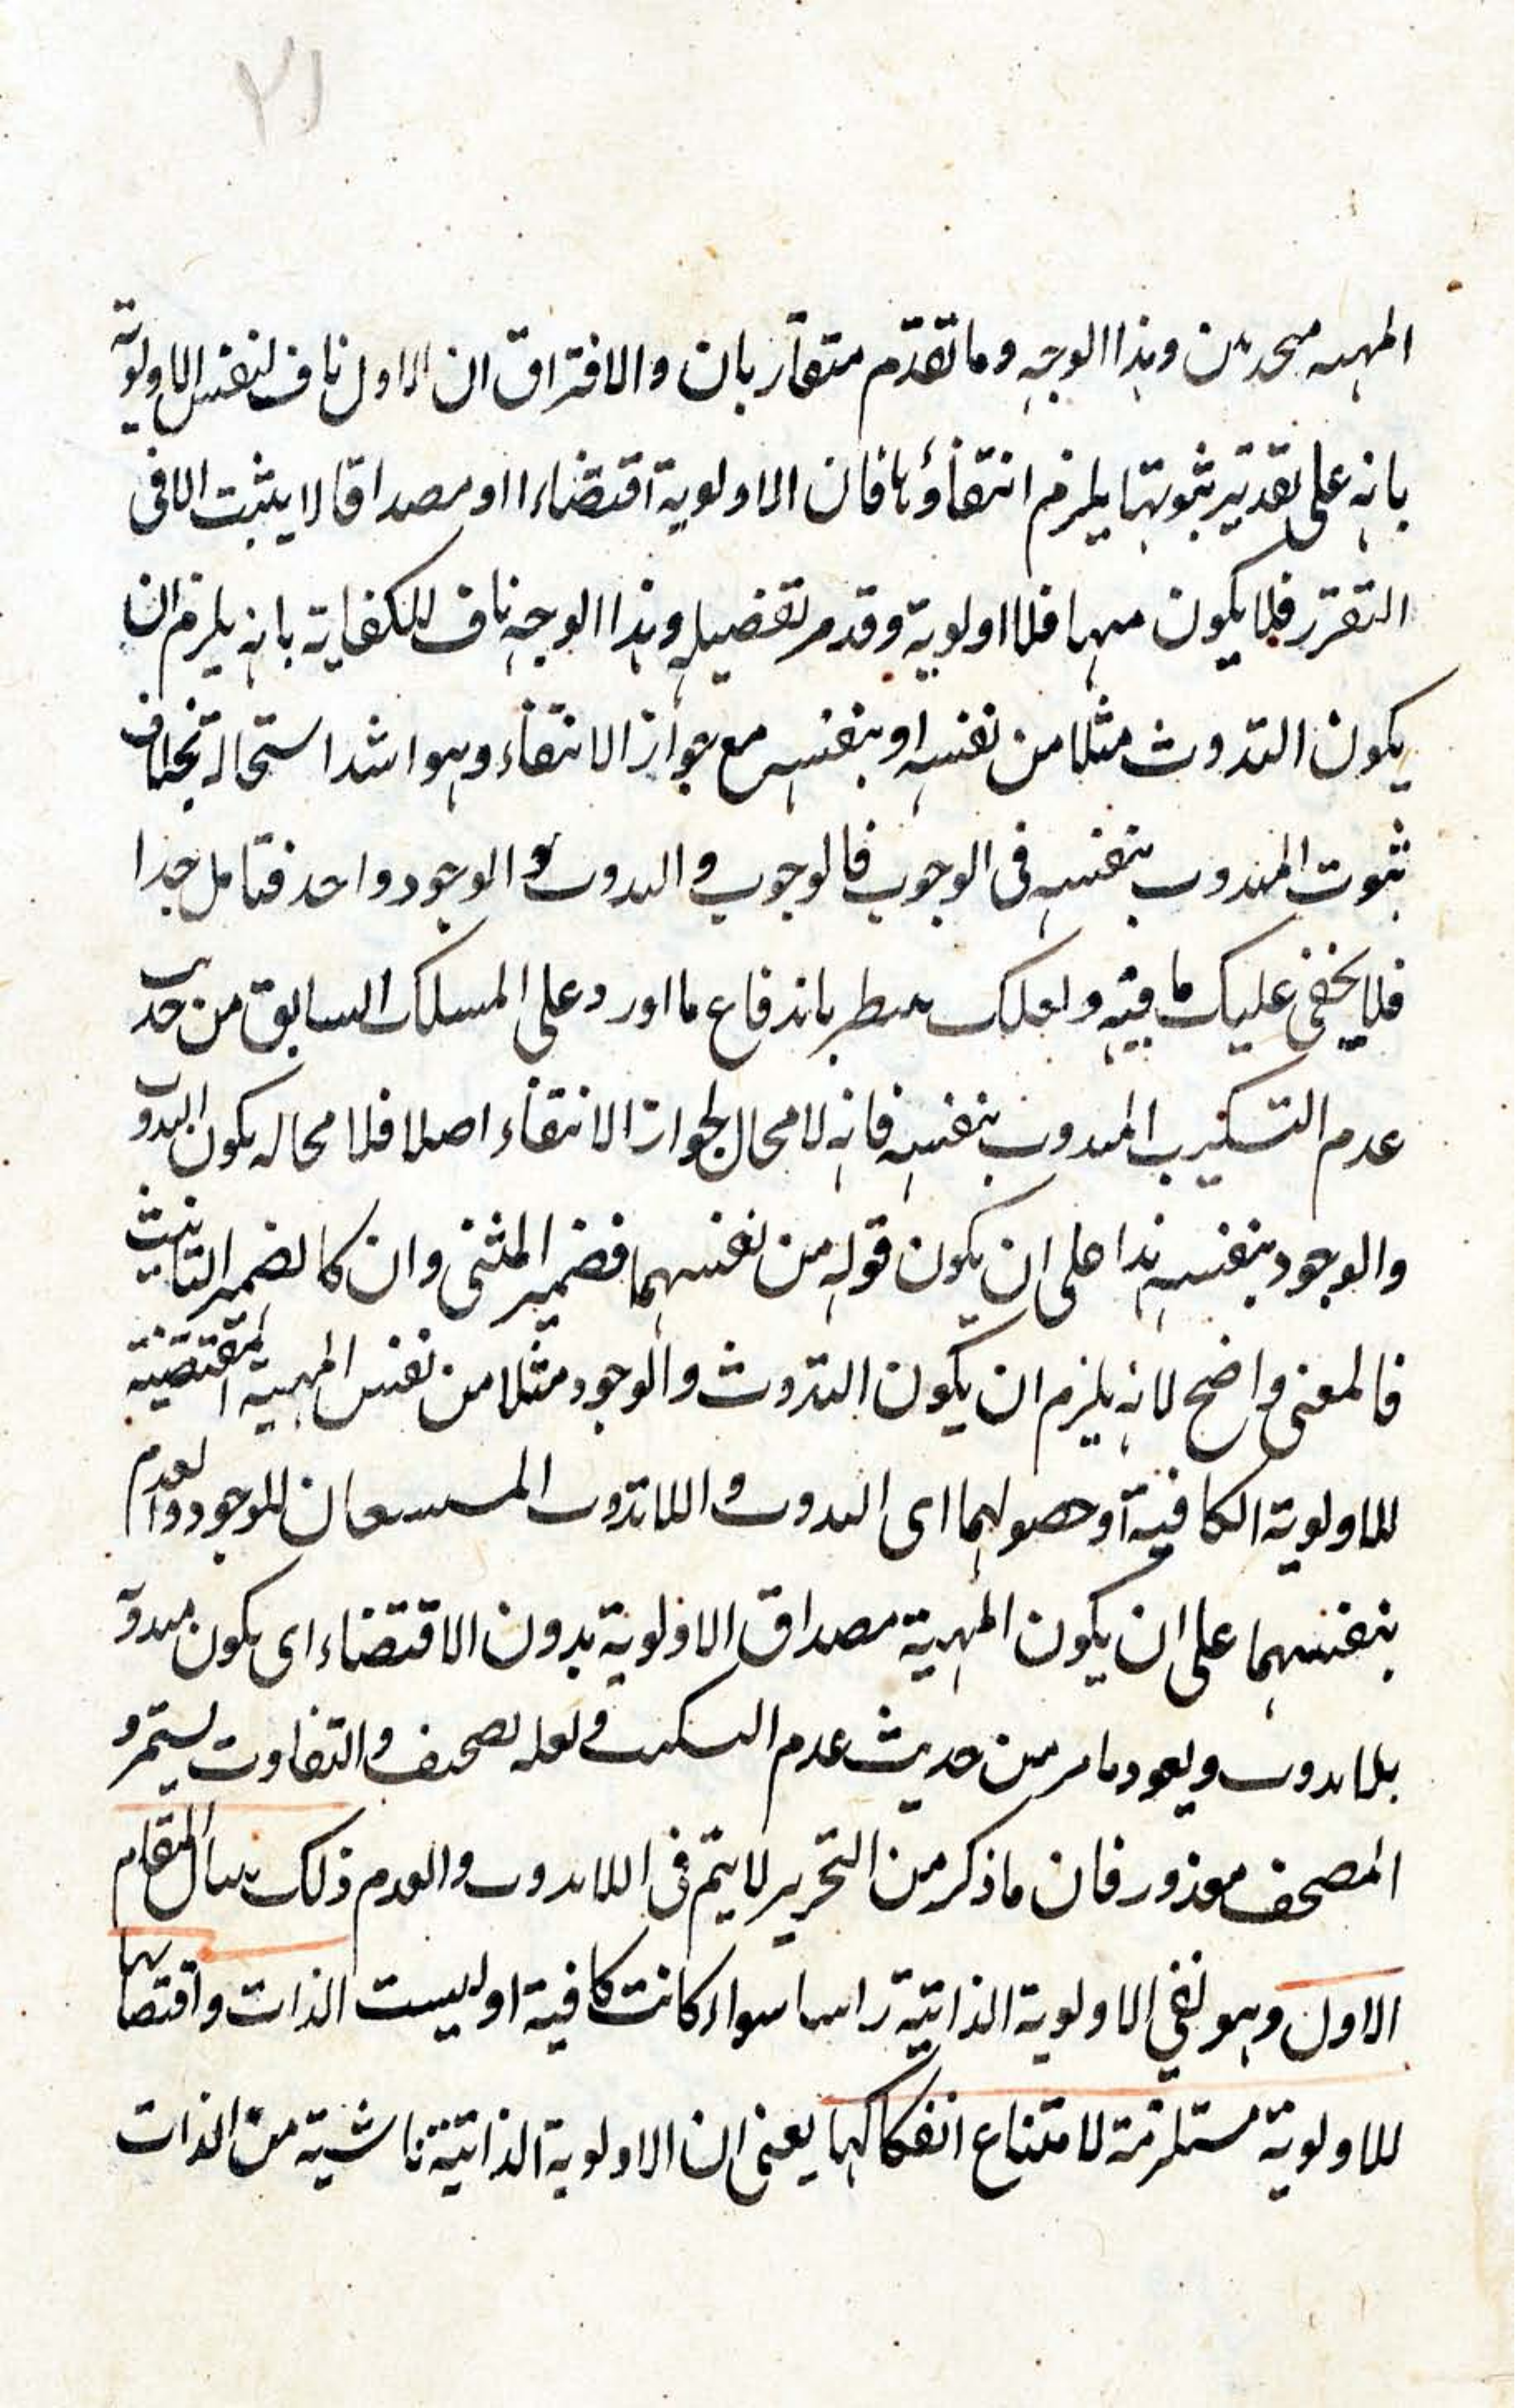 ٢١
المهية وهذا الوجه وما تقدم متقاربان والافتراق ان الاول ناف لنفس الاولوية
بانه على تقدير ثبوتها يلزم انتفاؤها فان الاولوية اقتضاءا او مصداقا لا يثبت الا فى
التقرر فلا يكون مهيا فلا اولوية وقد مر تفصيله وهذا الوجه ناف للكفاية بانه يلزم ان
يكون التذوت مثلا من نفسه او بنفسه مع جواز الانتفاء وهو اشد استحالة بخلاف
ثبوت المذوت بنفسه فى الوجوب فالوجوب والتذوت والوجود واحد فتامل جدا
فلا يخفى عليك ما فيه ولعلك باندفاع ما اورد على المسلك السابق من حديث
عدم المذوت بنفسه فانه لا مجال لجواز الانتفاء اصلا فلا محالة يكون التذوت
والوجود بنفسه هذا على ان يكون قوله من نفسهما فضمير المثنى وان كا لضمير التانيث
فالمعنى واضح لانه يلزم ان يكون التذوت والوجود مثلا من نفس المهية المقتضية
للاولوية الكافية او حصولهما اى التذوت واللاتذوت للوجود والعدم
بنفسهما على ان يكون المهية مصداق الاولوية بدون الاقتضاء اى يكون
بلا تذوت ويعود ما مر من حديث عدم ولعله تصحيف والتفاوت يستمر و
المصحف معذور فان ما ذكر من التحرير لا يتم فى اللاتذوت والعدم ذلك بيان المقام
الاول وهو نفى الاولوية الذاتية راسا سواء كانت كافية او ليست الذات واقتضاها
للاولوية مستلزمة لامتناع انفكاكها يعنى ان الاولوية الذاتية ناشية من الذات